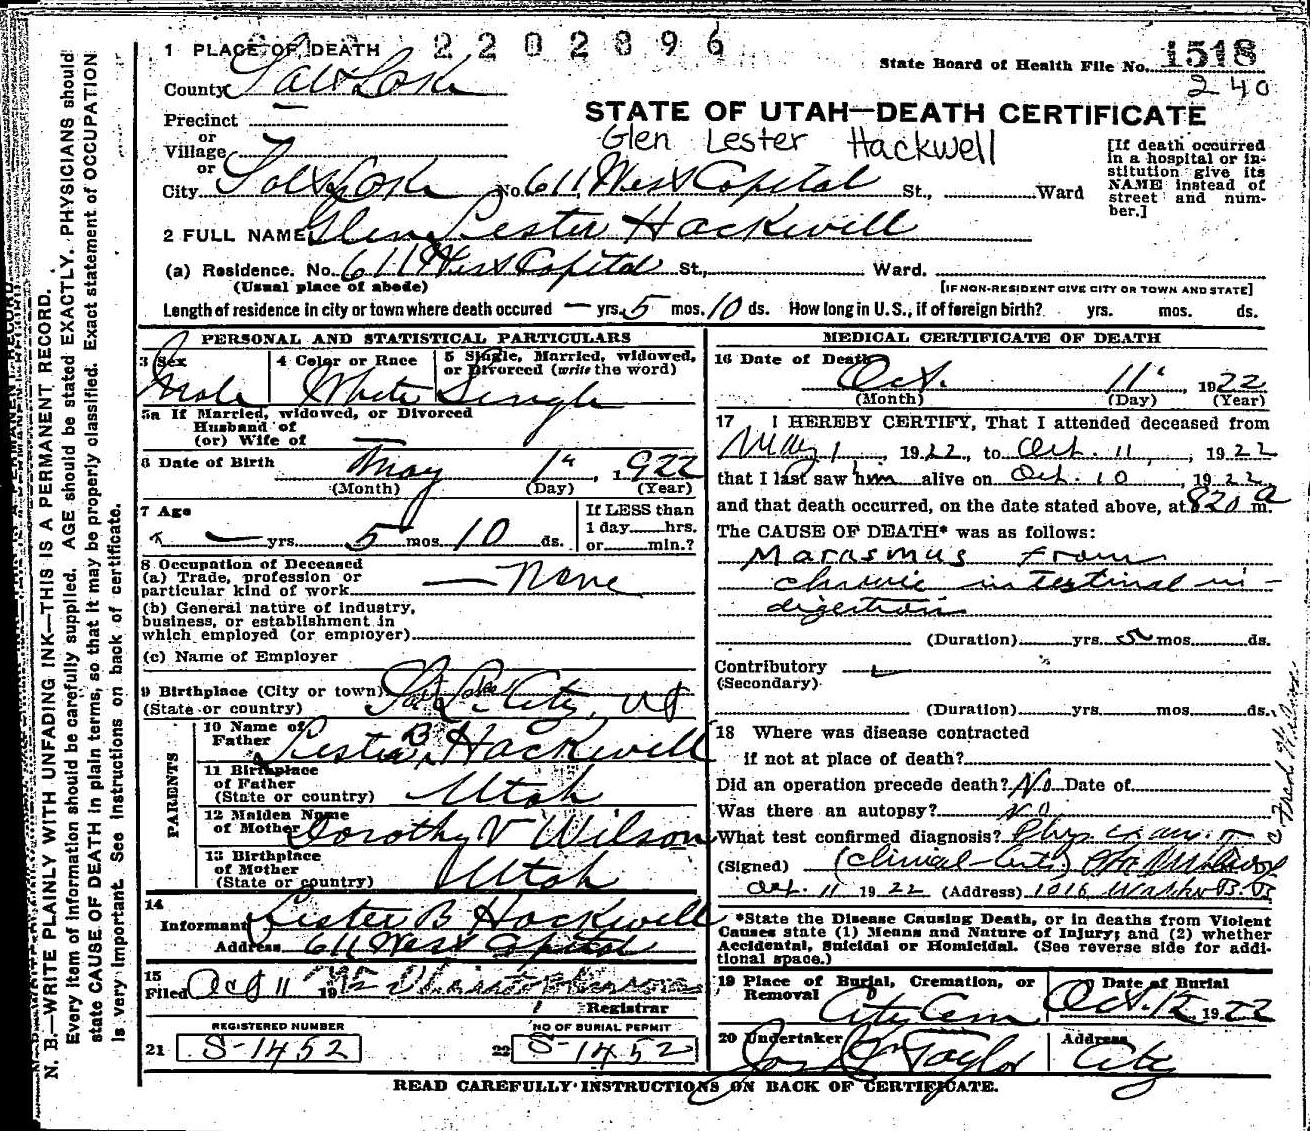 1 PLACE OF DEATH 2202896
State Board of Health File No. 1518
240
County Salt Lake
STATE OF UTAH—DEATH CERTIFICATE
Precinct
Glen Lester Hackwell
or
Village
or
City Salt Lake No. 611 West Capital St., Ward
[If death occurred in a hospital or in-
stitution give its
NAME instead of
street and num-
ber.]
2 FULL NAME Glen Lester Hackwill
(a) Residence. No. 611 West Capital St., Ward.
(Usual place of abode) [IF NON-RESIDENT GIVE CITY OR TOWN AND STATE]
Length of residence in city or town where death occured — yrs. 5 mos. 10 ds. How long in U.S., if of foreign birth? yrs. mos. ds.
PERSONAL AND STATISTICAL PARTICULARS
3 Sex Male
4 Color or Race White
5 Single, Married, widowed,
or Divorced (write the word) Single
5a If Married, widowed, or Divorced
Husband of
(or) Wife of —
6 Date of Birth May 1" 1922
(Month) (Day) (Year)
7 Age — yrs. 5 mos. 10 ds.
If LESS than
1 day hrs.
or min.?
8 Occupation of Deceased
(a) Trade, profession or
particular kind of work — None
(b) General nature of industry,
business, or establishment in
which employed (or employer)
(c) Name of Employer
9 Birthplace (City or town) Salt Lake City, Ut
(State or country)
PARENTS
10 Name of
Father Lester B. Hackwill
11 Birthplace
of Father
(State or country) Utah
12 Maiden Name
of Mother Dorothy V Wilson
13 Birthplace
of Mother
(State or country) Utah
14
Informant Lester B Hackwill
Address 611 West Capital
15
Filed Oct 11 19
Registrar
REGISTERED NUMBER
21 S-1452
NO OF BURIAL PERMIT
22 S-1452
MEDICAL CERTIFICATE OF DEATH
16 Date of Death Oct. 11" 1922
(Month) (Day) (Year)
17 I HEREBY CERTIFY, That I attended deceased from
May 1, 1922, to Oct. 11, 1922
that I last saw him alive on Oct. 10, 1922
and that death occurred, on the date stated above, at 820 a m.
The CAUSE OF DEATH* was as follows:
Marasmus From
chronic intestinal in-
digestion
(Duration) yrs. 5 mos. ds.
Contributory
(Secondary)
(Duration) yrs. mos. ds.
18 Where was disease contracted
if not at place of death?
Did an operation precede death? No Date of
Was there an autopsy? No
What test confirmed diagnosis? Phys. exam.
(Signed)
Oct. 11 1922 (Address) 1016
*State the Disease Causing Death, or in deaths from Violent
Causes state (1) Means and Nature of Injury; and (2) whether
Accidental, Suicidal or Homicidal. (See reverse side for addi-
tional space.)
19 Place of Burial, Cremation, or
Removal City Cem
Date of Burial
Oct. 12, 1922
20 Undertaker Jos. Taylor
Address City
READ CAREFULLY INSTRUCTIONS ON BACK OF CERTIFICATE.
N. B.—WRITE PLAINLY WITH UNFADING INK—THIS IS A PERMANENT RECORD.
Every item of information should be carefully supplied. AGE should be stated EXACTLY. PHYSICIANS should
state CAUSE OF DEATH in plain terms, so that it may be properly classified. Exact statement of OCCUPATION
is very important. See instructions on back of certificate.